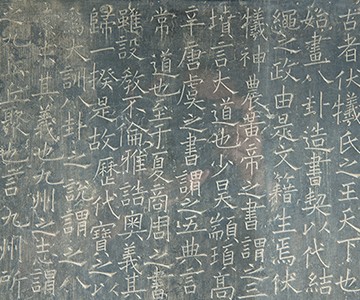 古者伏犧氏之王天下也
始畫八卦造書契以代結
繩之政由是文籍生焉伏
犧神農黃帝之書謂之三
墳言大道也少昊顓頊高
辛唐虞之書謂之五典言
常道也至于夏商周之書
雖設教不倫雅誥奧義其
歸一揆是故歷代寶之以
為大訓八卦之說謂之八
求其義也九州之志謂
之九丘丘聚也言九州所